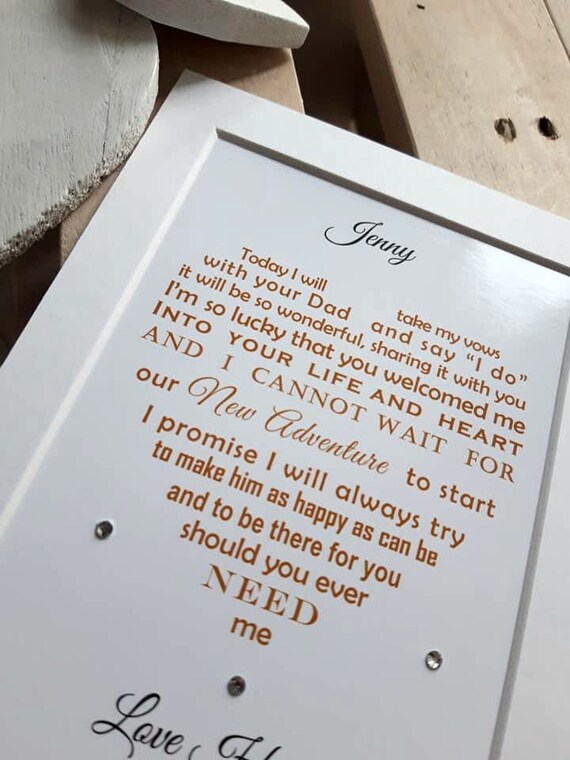 Jenny
Today I will take my vows
with your Dad and say “I do”
it will be so wonderful, sharing it with you
I'm so lucky that you welcomed me
INTO YOUR LIFE AND HEART
AND I CANNOT WAIT FOR
our New Adventure to start
I promise I will always try
to make him as happy as can be
and to be there for you
should you ever
NEED
me
Love